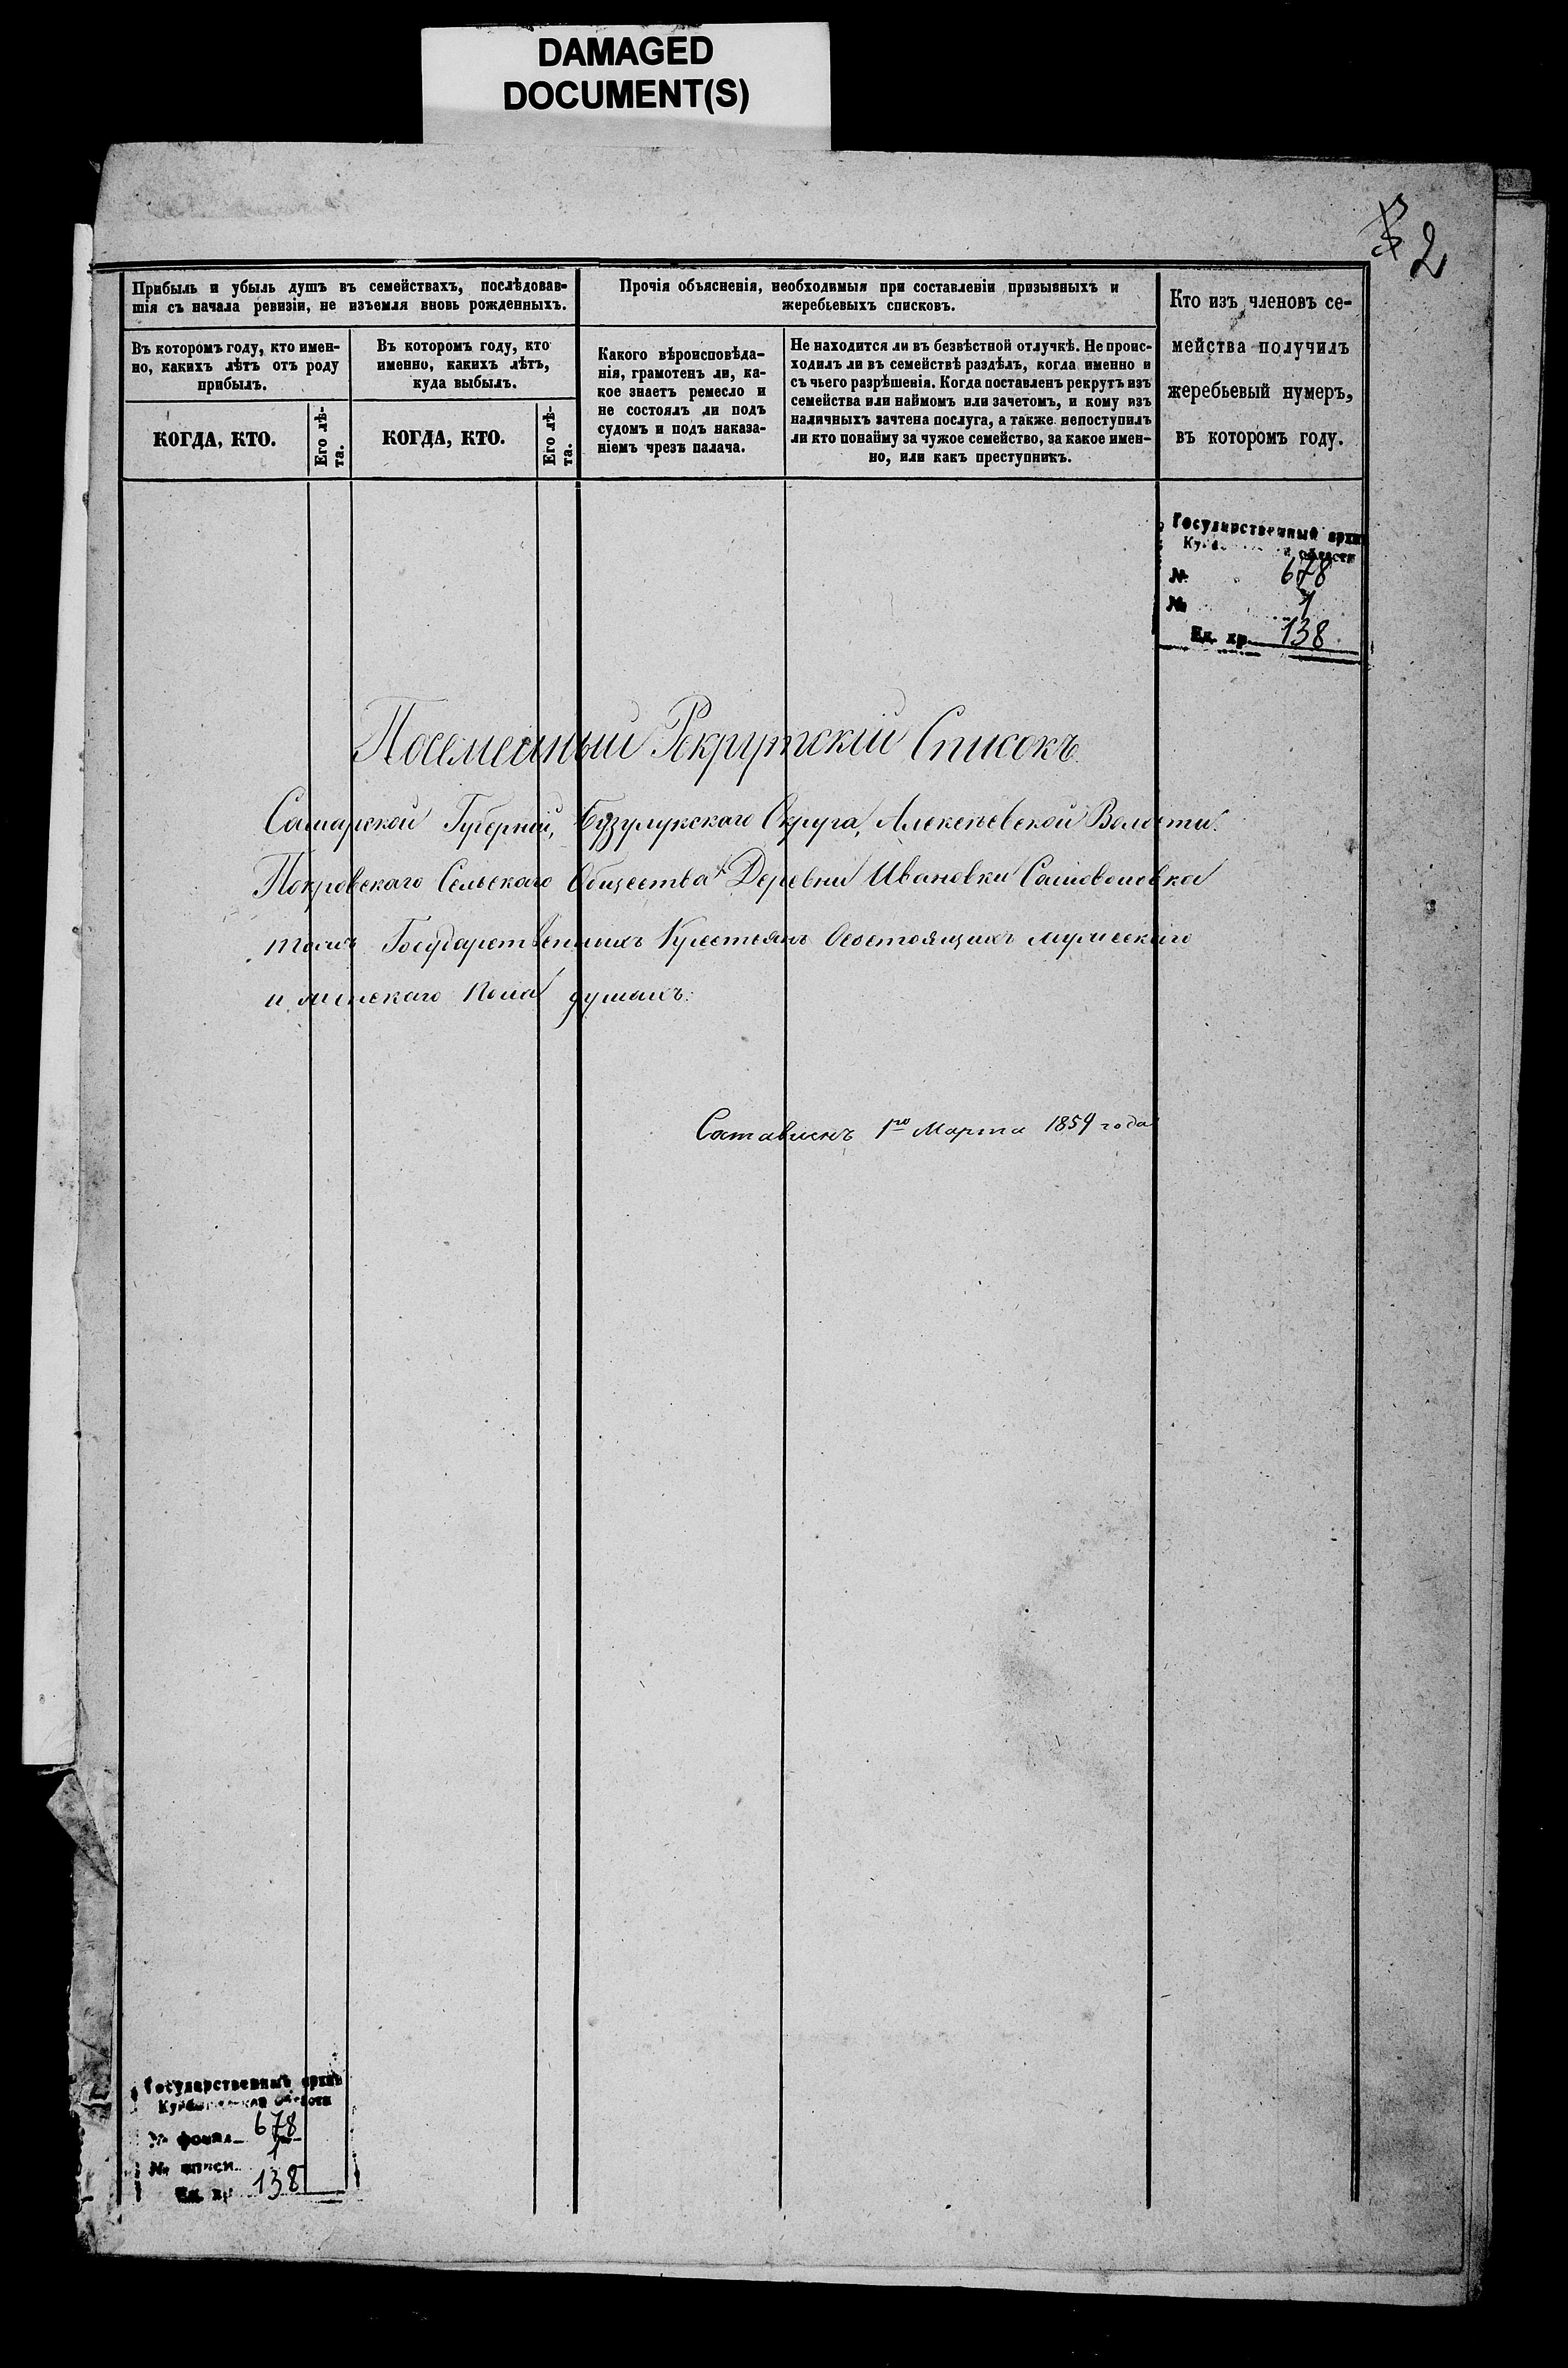 DAMAGED
DOCUMENT(S)
2
Прибыль и убыль душъ въ семействахъ, послѣдовав-
шія съ начала ревизіи, не изъемля вновь рожденныхъ.
Прочія объясненія, необходимыя при составленіи призывныхъ и
жеребьевыхъ списковъ.
Кто изъ членовъ се-
мейства получилъ
жеребьевый нумеръ,
въ которомъ году.
Въ которомъ году, кто имен-
но, какихъ лѣтъ отъ роду
прибылъ.
Въ которомъ году, кто
именно, какихъ лѣтъ,
куда выбылъ.
Какого вѣроисповѣда-
нія, грамотенъ ли, ка-
кое знаетъ ремесло и
не состоялъ ли подъ
судомъ и подъ наказа-
ніемъ чрезъ палача.
Не находится ли въ безвѣстной отлучкѣ. Не проис-
ходилъ ли въ семействѣ раздѣлъ, когда именно и
съ чьего разрѣшенія. Когда поставленъ рекрутъ изъ
семейства или наймомъ или зачетомъ, и кому изъ
наличныхъ зачтена послуга, а также непоступилъ
ли кто понайму за чужое семейство, за какое имен-
но, или какъ преступникъ.
КОГДА, КТО.
Его лѣ-
та.
КОГДА, КТО.
Его лѣ-
та.
Государственный архив
области
№ 678
№ 1
Ед. хр. 138
Посемейный Рекрутскій Списокъ
Самарской Губерніи, Бузулукского Округа, Алексѣевской Волости.
Покровскаго Сельскаго Общества Деревни Ивановки Самовольовка
тожъ Государственныхъ Крестьянъ Осостоящихъ мужескаго
и женскаго пола душахъ.
Составленъ 1го Марта 1859 года
Государственный архив
области
№ фонда 678
№ описи 1
Ед. хр. 138